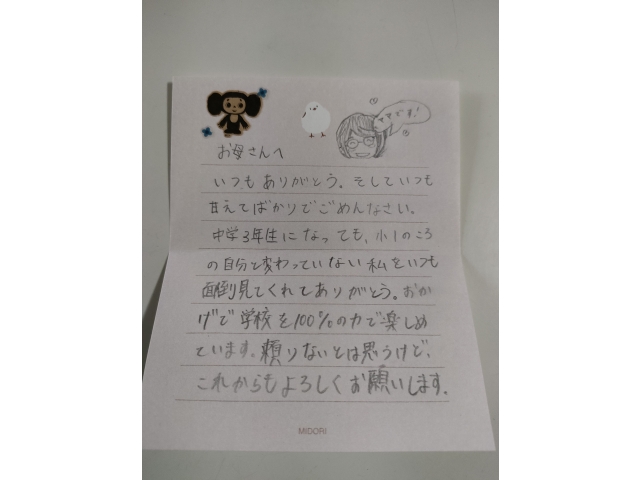 ママです!
お母さんへ
いつもありがとう。そしていつも
甘えてばかりでごめんなさい。
中学3年生になっても、小1のころ
の自分と変わっていない私をいつも
面倒見てくれてありがとう。おか
げで学校を100%の力で楽しめ
ています。頼りないとは思うけど、
これからもよろしくお願いします.
MIDORI